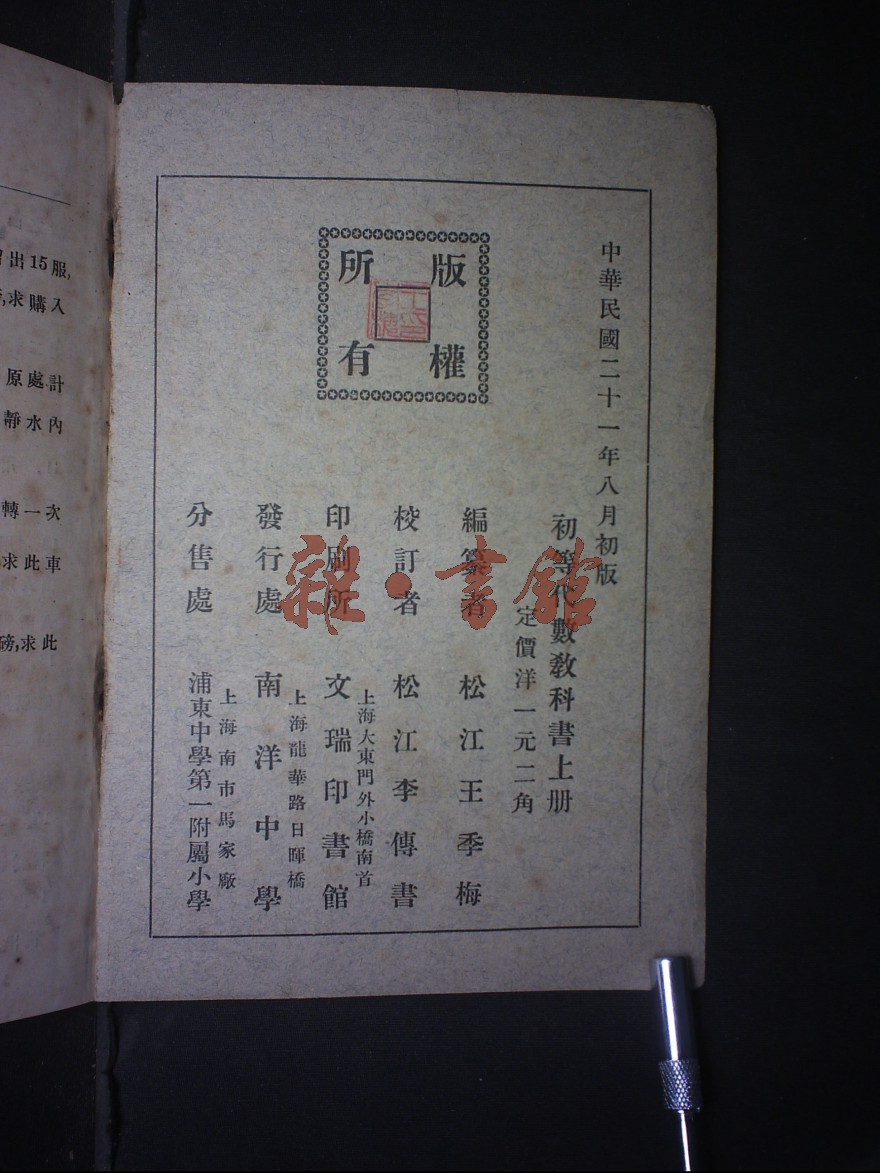 中華民國二十一年八月初版
版權
所有
初等代數敎科書上册
定價洋一元二角
編纂者 松江王季梅
校訂者 松江李傳書
上海大東門外小橋南首
印刷所 文瑞印書館
上海龍華路日暉橋
發行處 南洋中學
上海南市馬家廠
分售處 浦東中學第一附屬小學
雜·書館
出15服,
,求購入
原處計
靜水內
轉一次
求此車
磅,求此